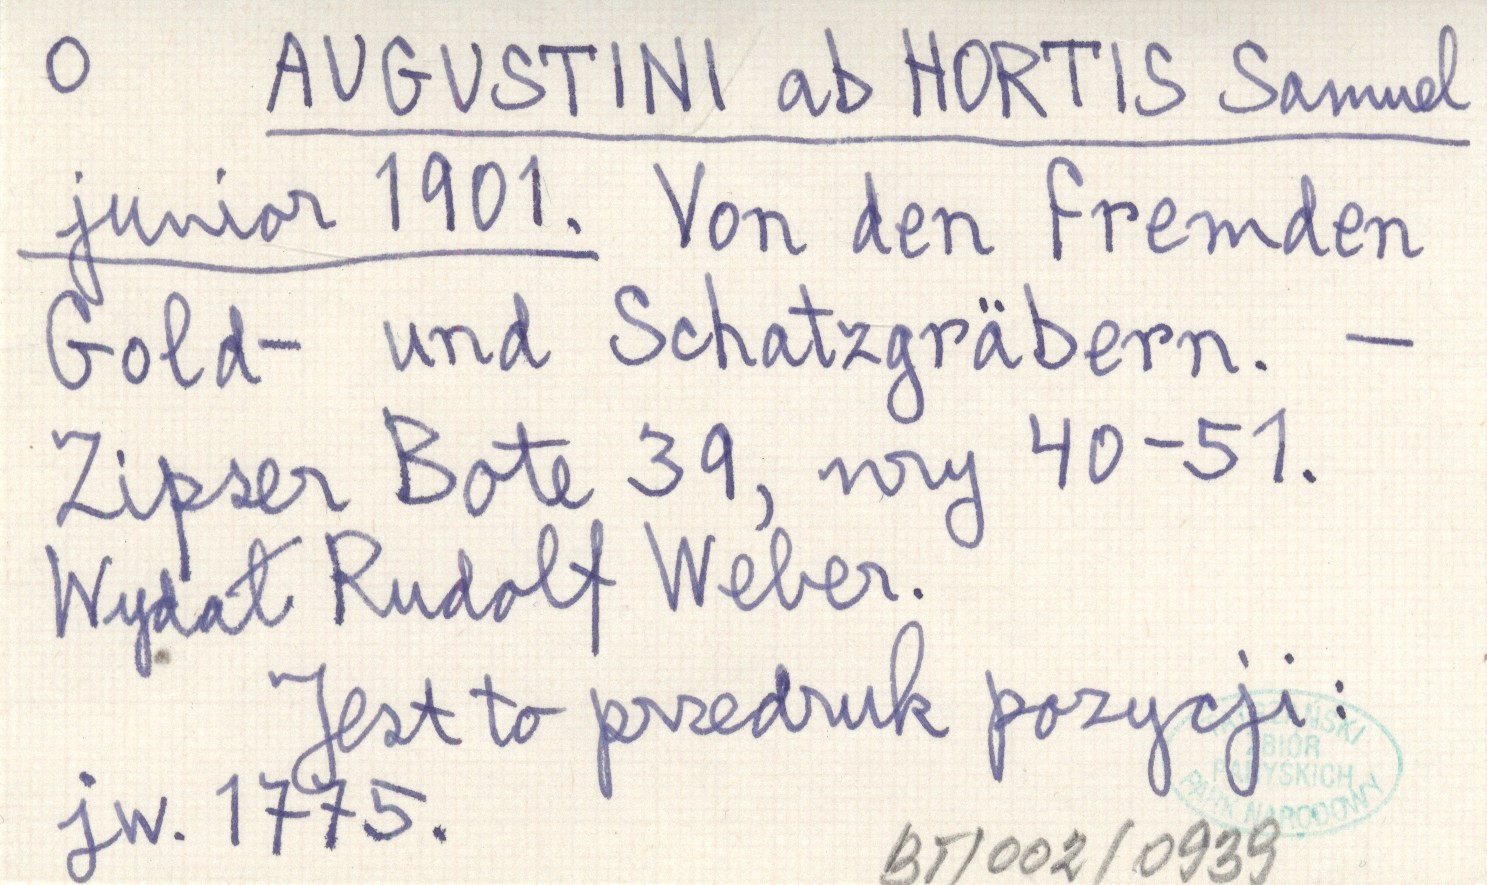 O AUGUSTINI ab HORTIS Samuel
junior 1901. Von den fremden
Gold- und Schatzgräbern. —
Zipser Bote 39, nry 40-51.
Wydał Rudolf Weber.
Jest to przedruk pozycji:
jw. 1775.
ZBIÓR
PARK NARODOWY
BT/002/0939